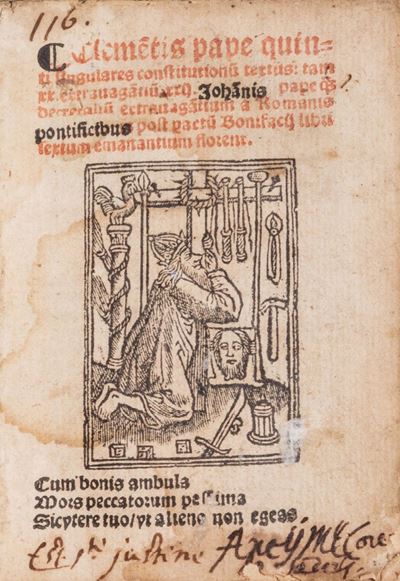 116.
Clemētis pape quin-
ti singulares constitutionū textus: tam
xx. extravagātiū xxij. Johānis pape q̄3
decretaliū extravagātium a Romanis
pontificibus post pactū Bonifacij libri
sextum emanantium florent.
Cum bonis ambula
Mors peccatorum pessima
Sic vtere tuo/vt alieno non egeas
Est